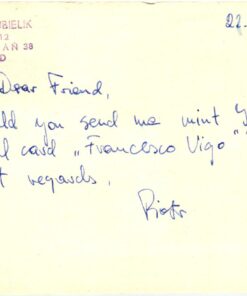 BIELIK
12
AŃ 38
D
22.
Dear Friend,
ld you send me mint
l card „Francesco Vigo"
t regards,
Piotr